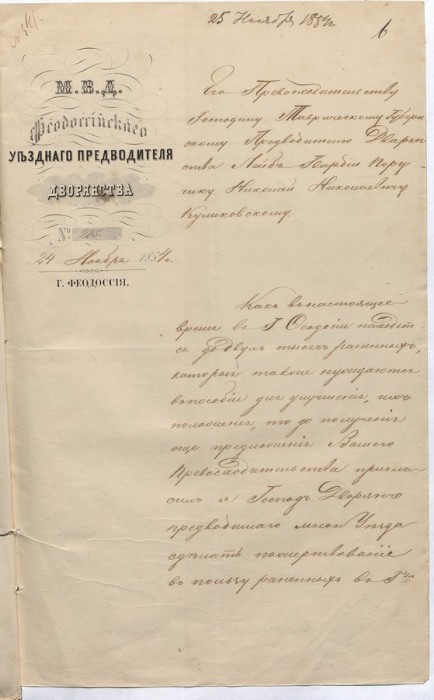 25 Ноября 1854г.
6
М. В. Д.
Ѳеодоссійскаго
УѢЗДНАГО ПРЕДВОДИТЕЛЯ
ДВОРЯНСТВА
№ 255.
24 Ноября 1854г.
Г. ѲЕОДОССІЯ.
Его Превосходительству
Господину Таврическому Губерн
скому Предводителю Дворян
ства Лейбъ Гвардіи Пору
чику Николаю Николаевичу
Куликовскому.
Какъ въ настоящее
время въ Г Ѳеодосіи находит
ся до двухъ тысячь раненныхъ,
которые также нуждаются
въ пособіи для улучшенія, ихъ
положенія, то до полученія
еще предложенія Вашего
Превосходительства пригла
силъ я Господъ Дворянъ
предводимаго мною Уѣзда
сдѣлать пожертвованіе
въ пользу раненныхъ въ Г